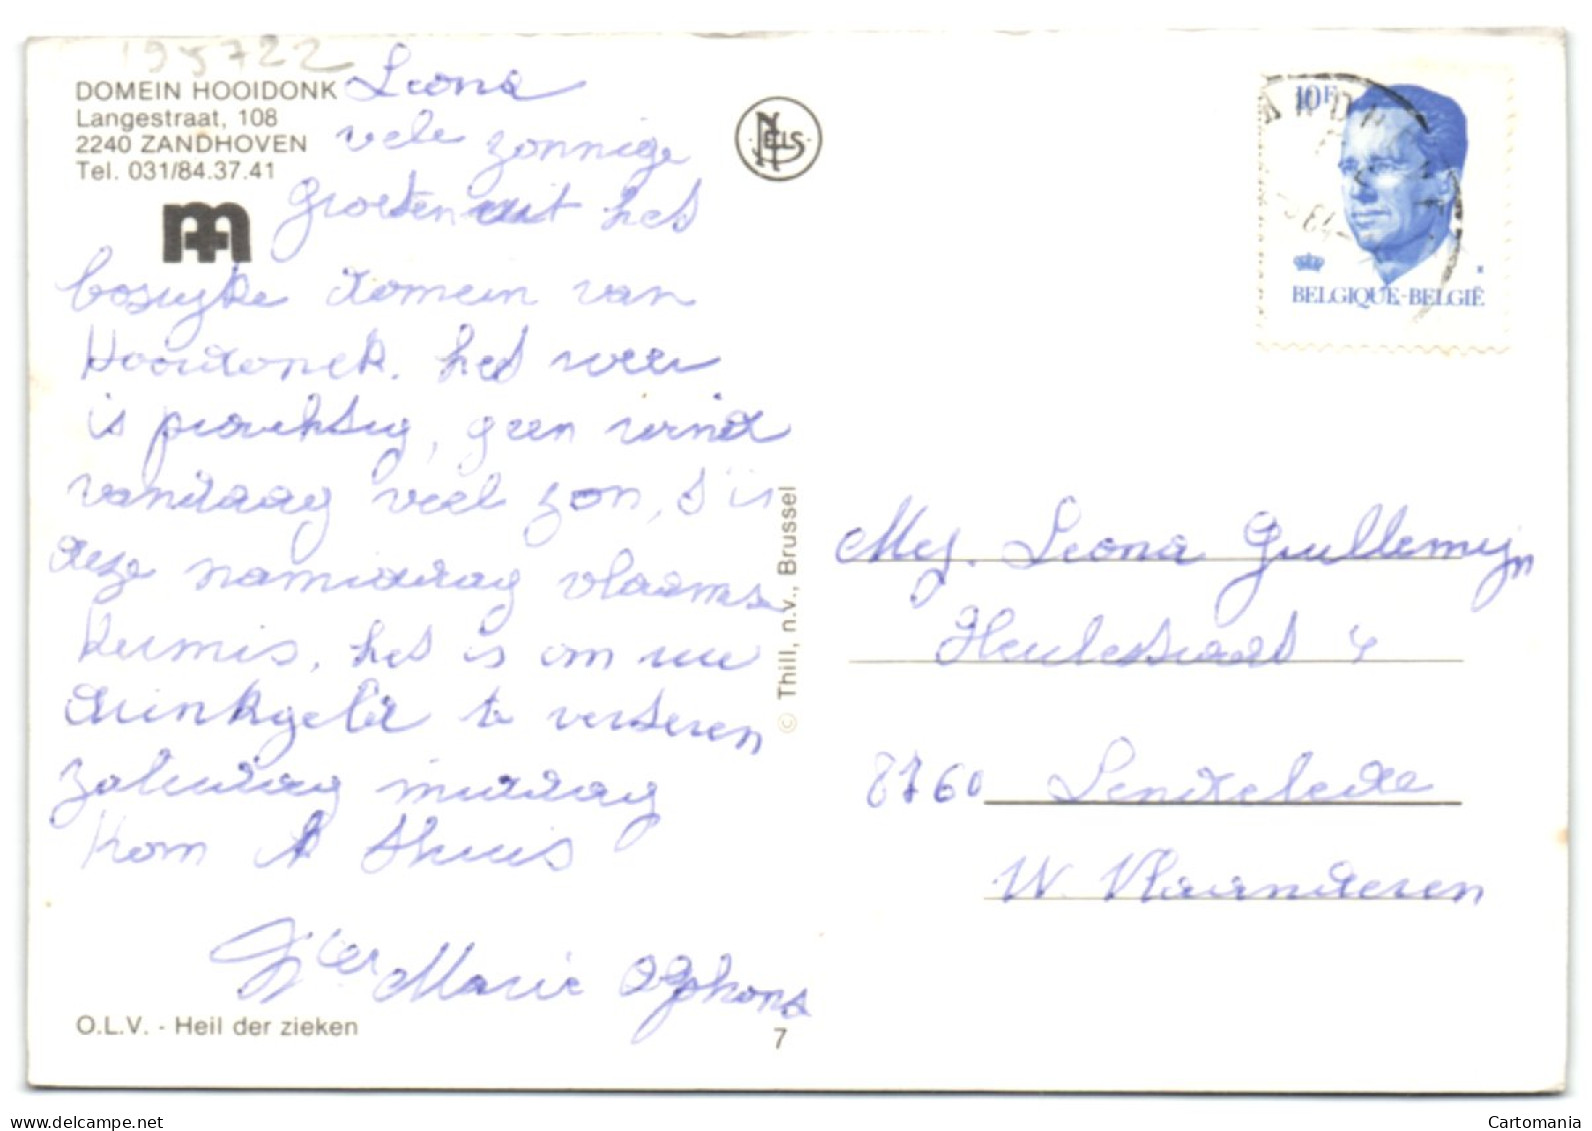 195722
DOMEIN HOOIDONK
Langestraat, 108
2240 ZANDHOVEN
Tel. 031/84.37.41
Leona
vele zonnige
groeten uit het
bosrijke domein van
Hooidonck. het weer
is prachtig, geen wind
vandaag veel zon, t is
deze namiddag vlaamse
kermis, het is om uw
drinkgeld te verteren
zaterdag middag
kom k thuis
Zter Marie Alphonsa
O.L.V. - Heil der zieken
7
© Thill, n.v., Brussel
NELS
10F
BELGIQUE-BELGIË
Mej. Leona Guillemyn
Heulestraat 4
8760 Lendelede
W. Vlaanderen
Cartomania